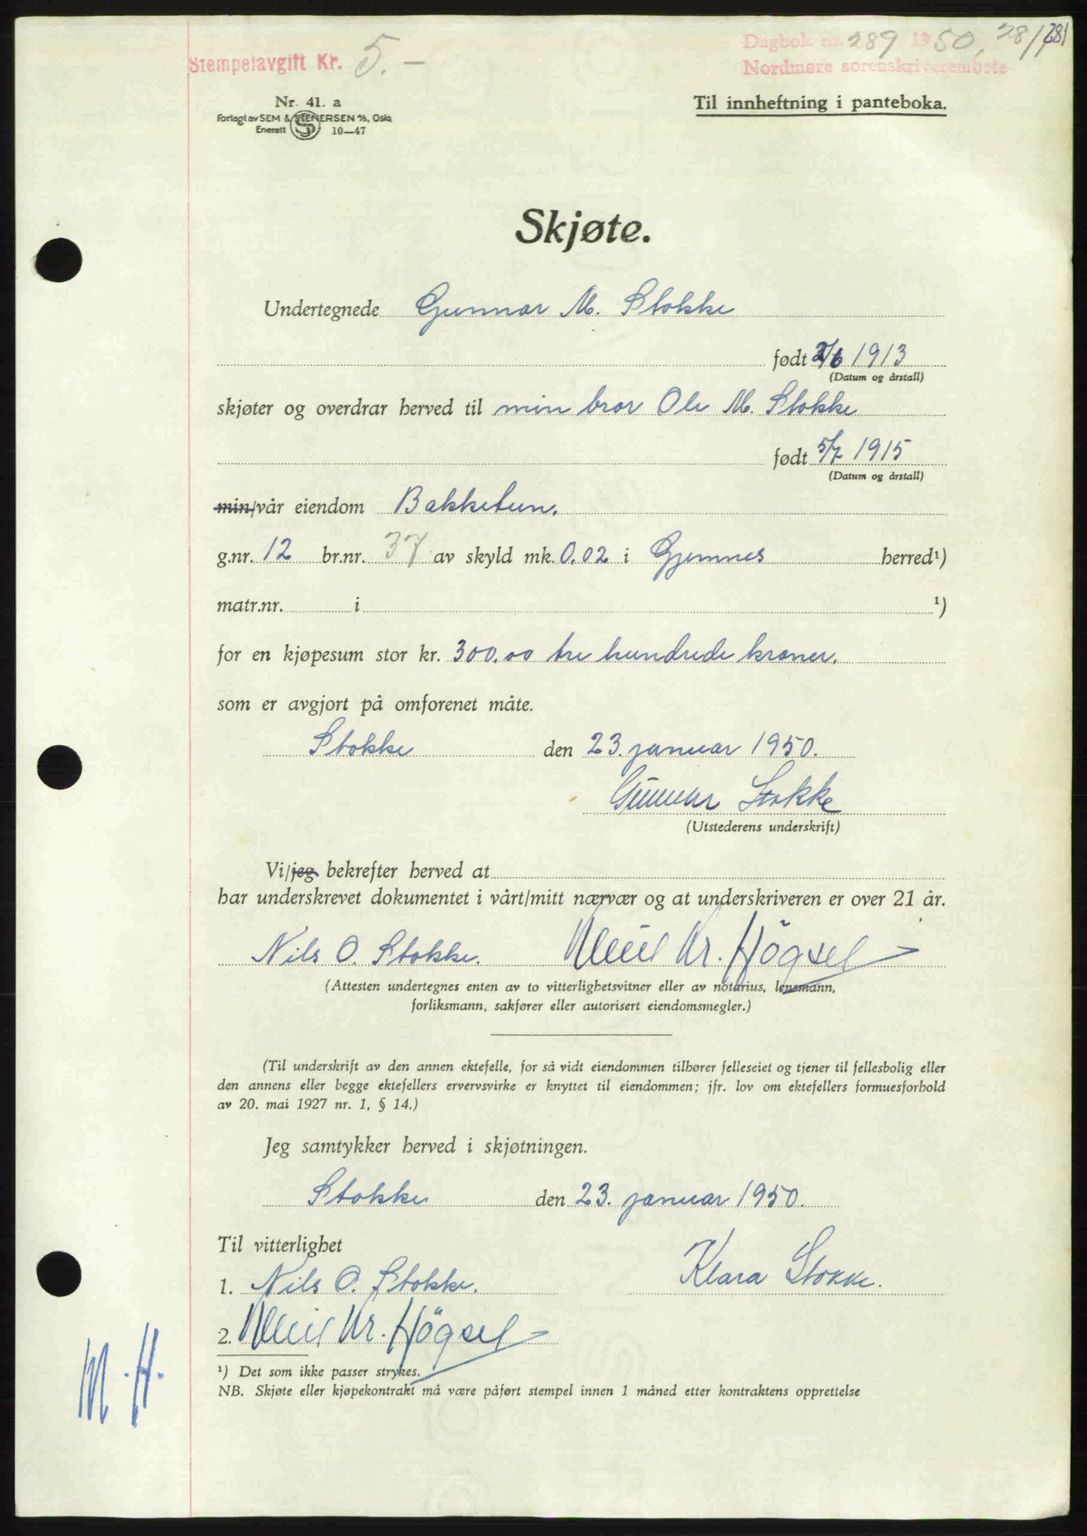 Stempelavgift Kr. 5.-
Dagbok nr. 289 1950, 28/1
281
Nordmøre sorenskriverembete
Nr. 41. a
Forlagt av SEM & STENERSEN A/S, Oslo
Enerett S 10—47
Til innheftning i panteboka.
Skjøte.
Undertegnede Gunnar M. Stokke
født 2/6 1913
(Datum og årstall)
skjøter og overdrar herved til min bror Ole M. Stokke
født 5/7 1915
(Datum og årstall)
min/vår eiendom Bakketun.
g.nr. 12 br.nr. 37 av skyld mk. 0.02 i Gjemnes herred¹)
matr.nr. i ¹)
for en kjøpesum stor kr. 300.00 tre hundrede kroner.
som er avgjort på omforenet måte.
Stokke den 23. januar 1950.
Gunnar Stokke
(Utstederens underskrift)
Vi/jeg bekrefter herved at
har underskrevet dokumentet i vårt/mitt nærvær og at underskriveren er over 21 år.
Nils O. Stokke. Kr. Högset
(Attesten undertegnes enten av to vitterlighetsvitner eller av notarius, lensmann,
forliksmann, sakfører eller autorisert eiendomsmegler.)
(Til underskrift av den annen ektefelle, for så vidt eiendommen tilhører felleseiet og tjener til fellesbolig eller
den annens eller begge ektefellers ervervsvirke er knyttet til eiendommen; jfr. lov om ektefellers formuesforhold
av 20. mai 1927 nr. 1, § 14.)
Jeg samtykker herved i skjøtningen.
Stokke den 23. januar 1950.
Til vitterlighet
1. Nils O. Stokke. Klara Stokke.
2. Kr. Högset
¹) Det som ikke passer strykes.
NB. Skjøte eller kjøpekontrakt må være påført stempel innen 1 måned etter kontraktens opprettelse
M.H.